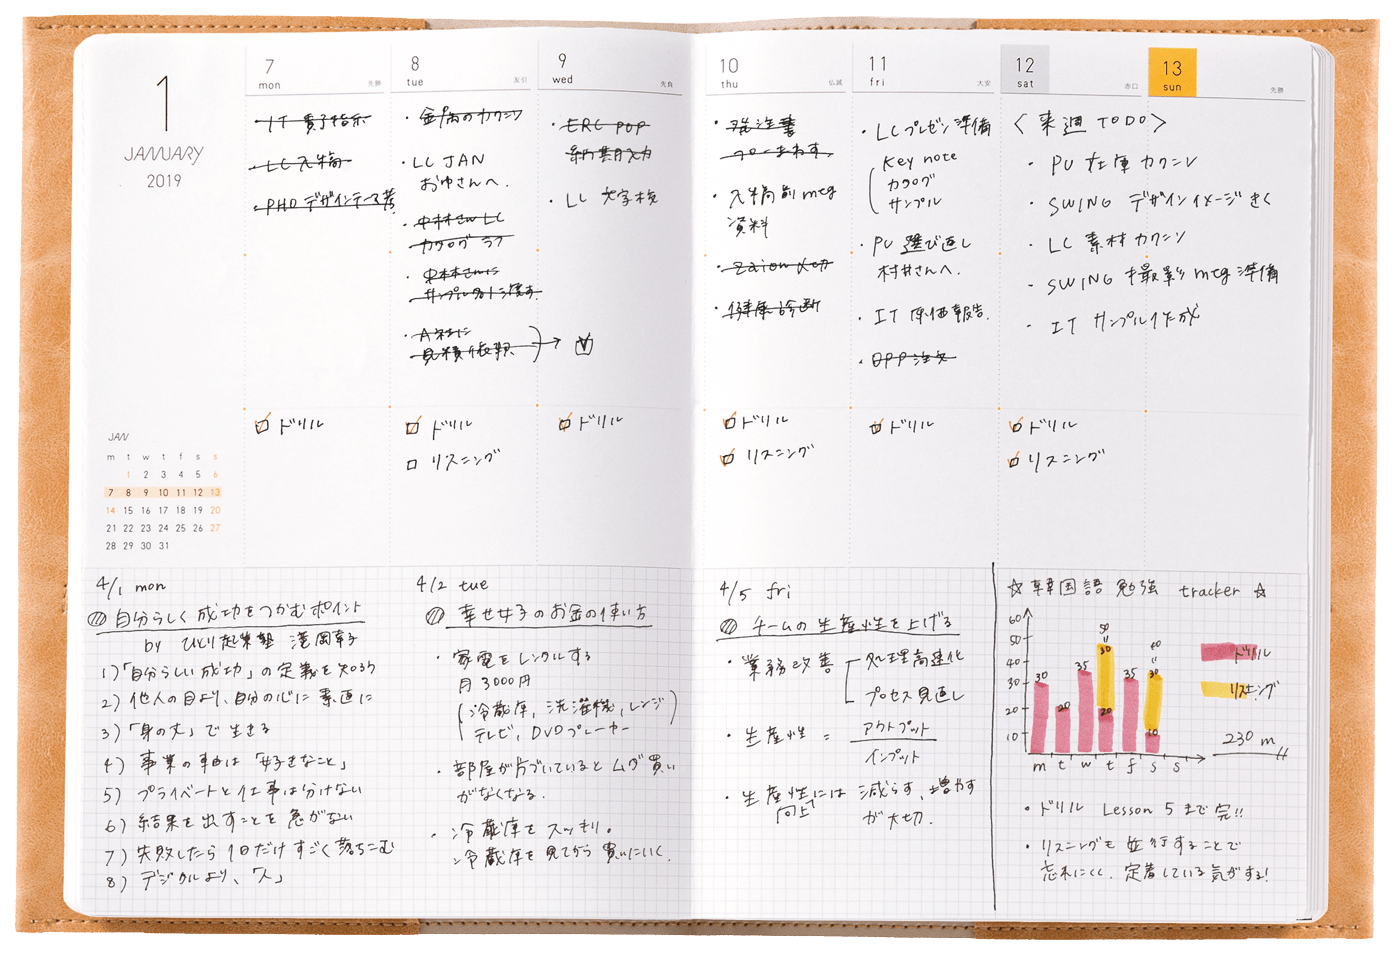 1
JANUARY
2019
7
mon
先勝
IT 貴子指示
LC入稿
PHD デザインテーマ考
8
tue
友引
金属のカクニン
LC JAN
おゆさんへ.
中林さん LC
カタログ ラフ
中林さんに
サンプル
A社に
見積依頼
9
wed
先負
ERC POP
納期入力
LC 文字校
10
thu
仏滅
発注書
フローまわす.
入稿前 mtg
資料
健康診断
11
fri
大安
LCプレゼン準備
Key note
カタログ
サンプル
PU 選び直し
村井さんへ.
IT 原価報告.
OPP注文
12
sat
赤口
13
sun
先勝
〈来週 TODO〉
PU 在庫カクニン
SWING デザインイメージきく
LC 素材カクニン
SWING 撮影 mtg 準備
IT サンプル作成
ドリル
ドリル
リスニング
ドリル
ドリル
リスニング
ドリル
ドリル
リスニング
JAN
m t w t f s s
1 2 3 4 5 6
7 8 9 10 11 12 13
14 15 16 17 18 19 20
21 22 23 24 25 26 27
28 29 30 31
4/1 mon
自分らしく成功をつかむポイント
by ひとり起業塾 滝岡幸子
1)「自分らしい成功」の定義を知ろう
2) 他人の目より、自分の心に素直に
3)「身の丈」で生きる
4) 事業の軸は「好きなこと」
5) プライベートと仕事は分けない
6) 結果を出すことを急がない
7) 失敗したら1日だけすごく落ちこむ
8) デジタルより、「人」
4/2 tue
幸せ女子のお金の使い方
・家電をレンタルする
月3000円
(冷蔵庫, 洗濯機, レンジ
テレビ, DVDプレーヤー)
・部屋が片づいているとムダ買い
がなくなる.
・冷蔵庫をスッキリ。
冷蔵庫を見てから買いにいく.
4/5 fri
チームの生産性を上げる
・業務改善
処理高速化
プロセス見直し
・生産性 = アウトプット
インプット
・生産性向上には 減らす、増やす
が大切.
☆韓国語 勉強 tracker☆
60
50
40
30
20
10
30
20
35
50
=
30
20
35
40
=
30
10
m t w t f s s
ドリル
リスニング
230 m
・ドリル Lesson 5まで完!!
・リスニングも並行することで
忘れにくく、定着している気がする!